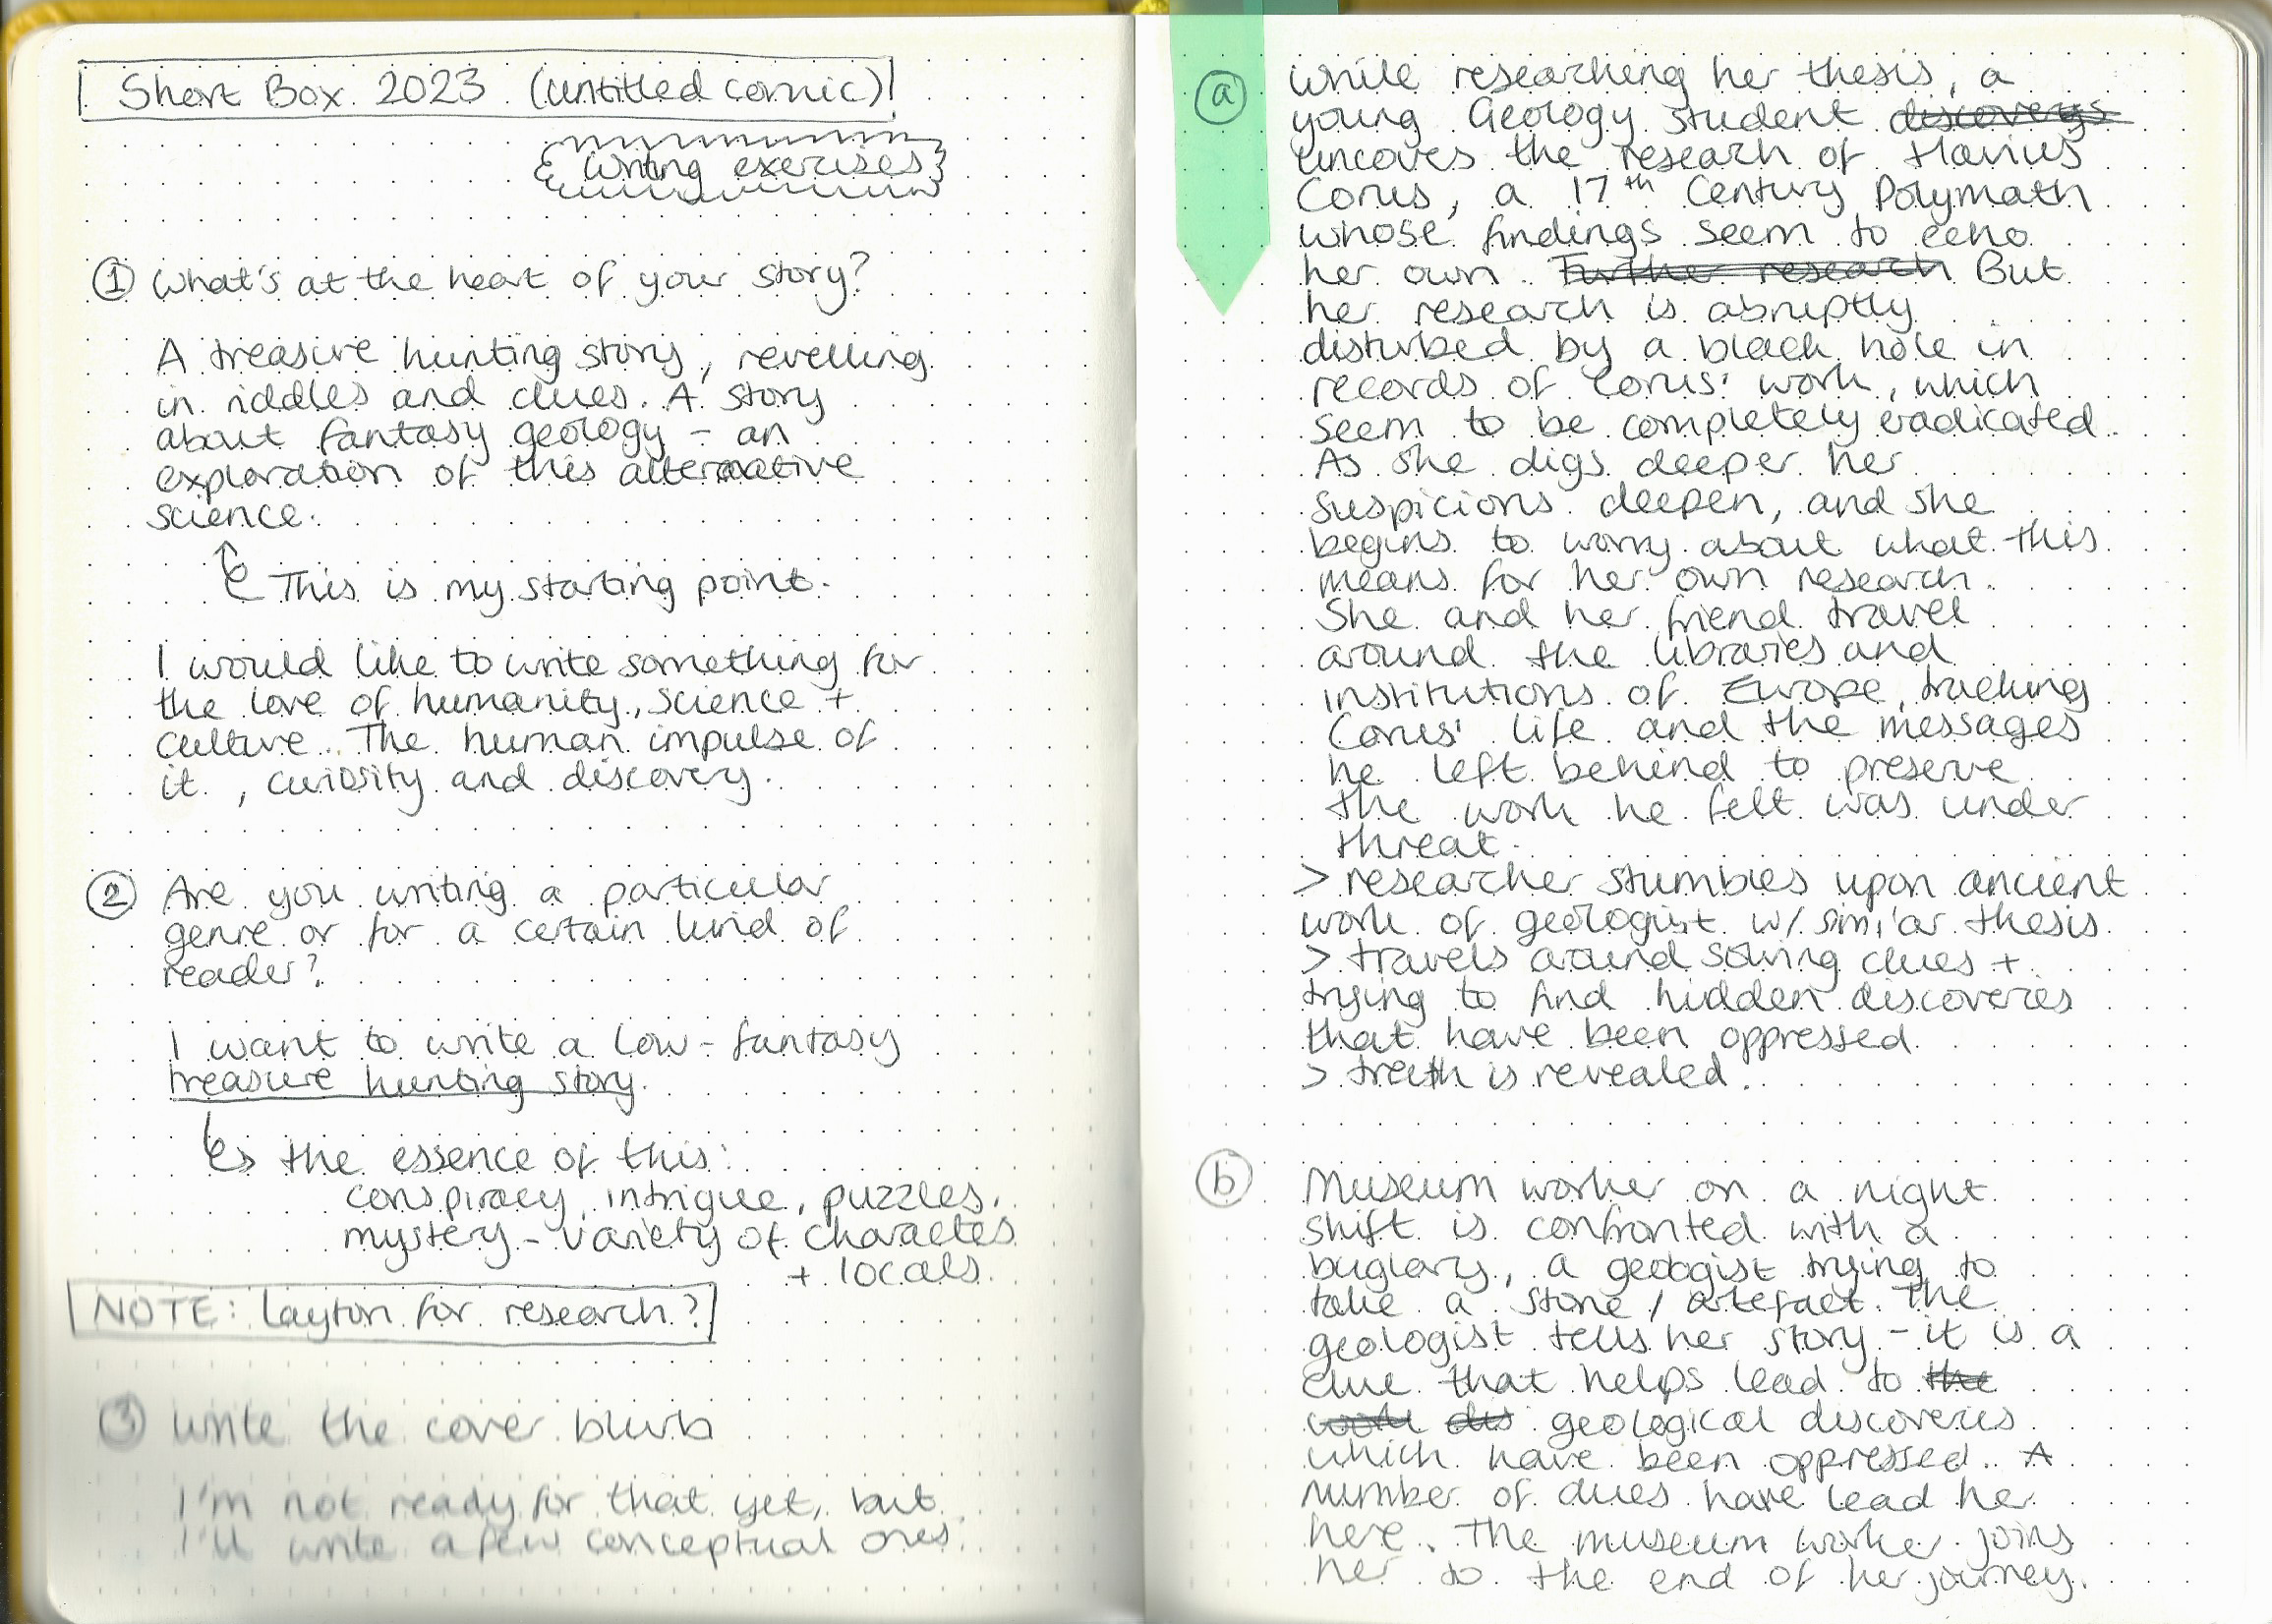 Short Box 2023 (untitled comic)
writing exercises
① What's at the heart of your story?
A treasure hunting story, revelling
in riddles and clues. A story
about fantasy geology - an
exploration of this alternative
science.
This is my starting point.
I would like to write something for
the love of humanity, science +
culture. The human impulse of
it, curiosity and discovery.
② Are you writing a particular
genre or for a certain kind of
reader?
I want to write a low-fantasy
treasure hunting story.
↳ the essence of this:
conspiracy, intrigue, puzzles,
mystery - variety of charactes
+ locals.
NOTE: Layton for research?
③ write the cover blurb
I'm not ready for that yet, but
I'll write a few conceptual ones.
ⓐ While researching her thesis, a
young Geology student discoverys
uncoves the research of Flavius
Corus, a 17th Century Polymath
whose findings seem to echo
her own. Further research But
her research is abruptly
disturbed by a black hole in
records of Corus' work, which
seem to be completely eradicated.
As she digs deeper her
suspicions deepen, and she
begins to worry about what this
means for her own research.
She and her friend travel
around the libraries and
institutions of Europe, tracking
Corus' life and the messages
he left behind to preserve
the work he felt was under
threat.
> researcher stumbles upon ancient
work of geologist w/ similar thesis
> travels around solving clues +
trying to find hidden discoveries
that have been oppressed
> truth is revealed.
ⓑ Museum worker on a night
shift is confronted with a
buglary, a geologist trying to
take a stone / artefact. The
geologist tells her story - it is a
clue that helps lead to the
work dis geological discoveries
which have been oppressed. A
number of clues have lead her
here. The museum worker joins
her to the end of her journey.